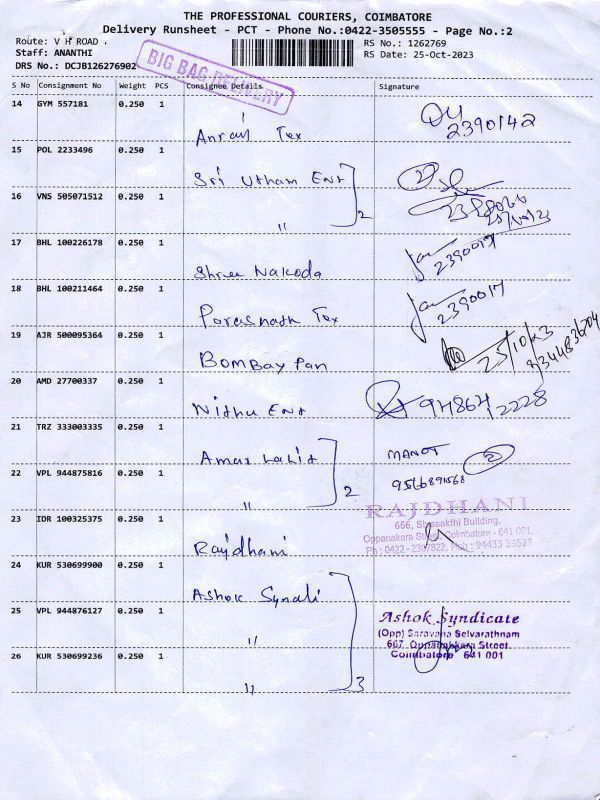 THE PROFESSIONAL COURIERS, COIMBATORE
Delivery Runsheet - PCT - Phone No.:0422-3505555 - Page No.:2
Route: V H ROAD .
RS No.: 1262769
Staff: ANANTHI
RS Date: 25-Oct-2023
DRS No.: DCJB126276902
BIG BAG DELIVERY
S No Consignment No Weight PCS Consignee Details Signature
14 GYM 557181 0.250 1
Tex
2390142
15 POL 2233496 0.250 1
Sri Utham Ent
2
16 VNS 505071512 0.250 1
" 2
25/10/23
17 BHL 100226178 0.250 1
2390017
Shree Nakoda
18 BHL 100211464 0.250 1
2390017
Parasnath Tex
19 AJR 500095364 0.250 1
25/10/23
Bombay Pan
20 AMD 27700337 0.250 1
Nithu Ent
94864/2228
21 TRZ 333003335 0.250 1
Amar Lalit
MANOJ 2
22 VPL 944875816 0.250 1
" 2
RAJDHANI
666, Sivasakthi Building,
Oppanakara Street, Coimbatore - 641 001.
23 IDR 100325375 0.250 1
Rajdhani
24 KUR 530699900 0.250 1
Ashok Syndi
25 VPL 944876127 0.250 1
"
Ashok Syndicate
(Opp) Saravana Selvarathnam
667, Oppanakkara Street,
Coimbatore - 641 001
26 KUR 530699236 0.250 1
" 3